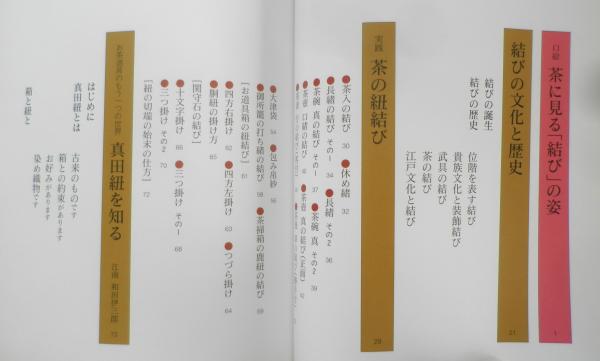 口絵 茶に見る「結び」の姿 1
結びの文化と歴史 21
結びの誕生
結びの歴史
位階を表す結び
貴族文化と装飾結び
武具の結び
茶の結び
江戸文化と結び
実践 茶の紐結び 29
●茶入の結び 30 ●休め緒 32
●長緒の結び その1 34 ●長緒 その2 36
●茶碗 真の結び その1 37 ●茶碗 真 その2 39
●茶壺 口緒の結び ●茶壺 真の結び(正面) 42
●大津袋 54 ●包み帛紗 56
●御所籠の打ち緒の結び 58 ●茶掃箱の鹿紐の結び 59
[お道具箱の紐結び] 61
●四方右掛け 62 ●四方左掛け 63 ●つづら掛け 64
●胴紐の掛け方 65
[関守石の結び]
●十文字掛け 66 ●三つ掛け その1 68
●三つ掛け その2 70
[紐の切端の始末の仕方] 72
お茶道具のもう一つの世界 真田紐を知る 江南 和田伊三郎 73
はじめに
真田紐とは
古来のものです
箱との約束があります
お好みがあります
染め織物です
箱と紐と